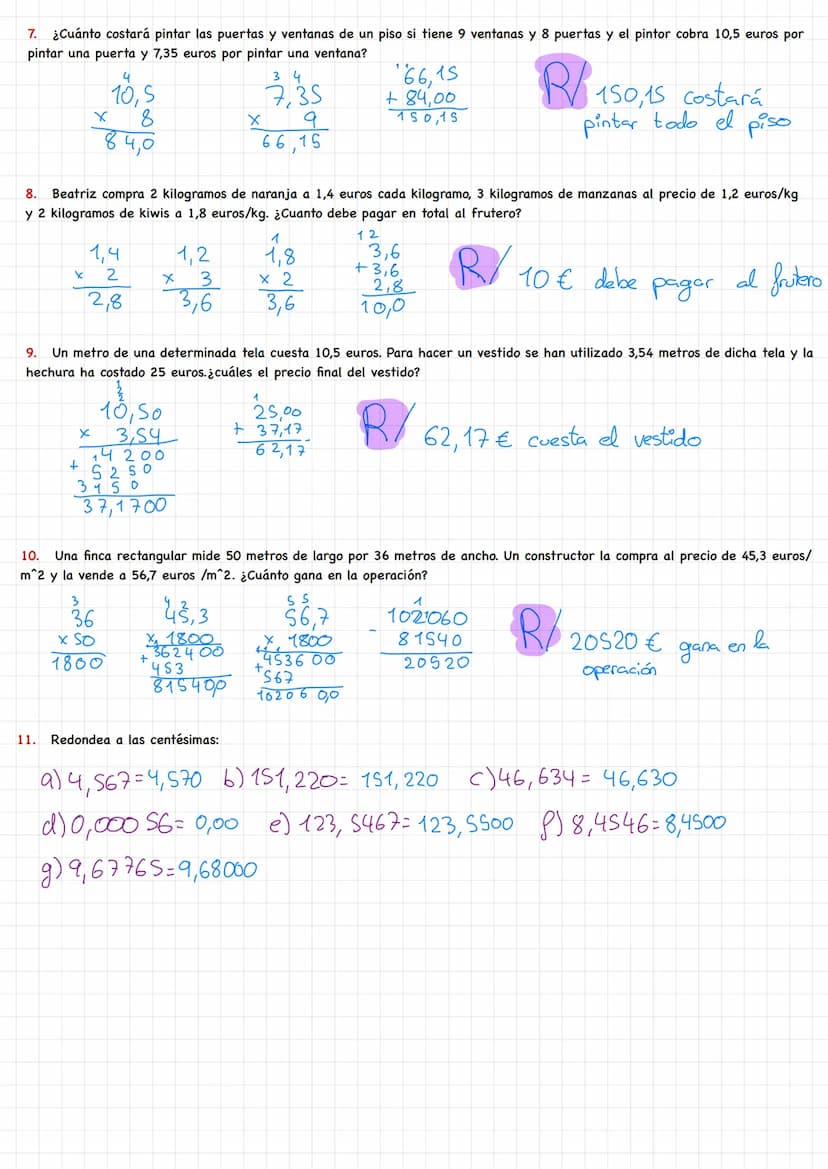 7. ¿Cuánto costará pintar las puertas y ventanas de un piso si tiene 9 ventanas y 8 puertas y el pintor cobra 10,5 euros por
pintar una puerta y 7,35 euros por pintar una ventana?
4
10,5
x 8
84,0
3 4
7,35
x 9
66,15
66,15
+ 84,00
150,15
R/ 150,15 costará
pintar todo el piso
8. Beatriz compra 2 kilogramos de naranja a 1,4 euros cada kilogramo, 3 kilogramos de manzanas al precio de 1,2 euros/kg
y 2 kilogramos de kiwis a 1,8 euros/kg. ¿Cuanto debe pagar en total al frutero?
1,4
x 2
2,8
1,2
x 3
3,6
1
1,8
x 2
3,6
1 2
3,6
+3,6
2,8
10,0
R/ 10 € debe pagar al frutero
9. Un metro de una determinada tela cuesta 10,5 euros. Para hacer un vestido se han utilizado 3,54 metros de dicha tela y la
hechura ha costado 25 euros.¿cuáles el precio final del vestido?
10,50
x 3,54
4200
+ 5250
3150
37,1700
1
25,00
+ 37,17
62,17
R/ 62,17 € cuesta el vestido
10. Una finca rectangular mide 50 metros de largo por 36 metros de ancho. Un constructor la compra al precio de 45,3 euros/
m^2 y la vende a 56,7 euros /m^2. ¿Cuánto gana en la operación?
3
36
x 50
1800
4 2
45,3
x 1800
362400
+ 453
815400
5 5
56,7
x 1800
453600
+ 567
102060,0
102060
- 81540
20520
R/ 20520 € gana en la
operación
11. Redondea a las centésimas:
a) 4,567=4,570 b) 151,220= 151,220 c) 46,634= 46,630
d) 0,00056= 0,00 e) 123,5467= 123,5500 f) 8,4546=8,4500
g) 9,67765=9,68000